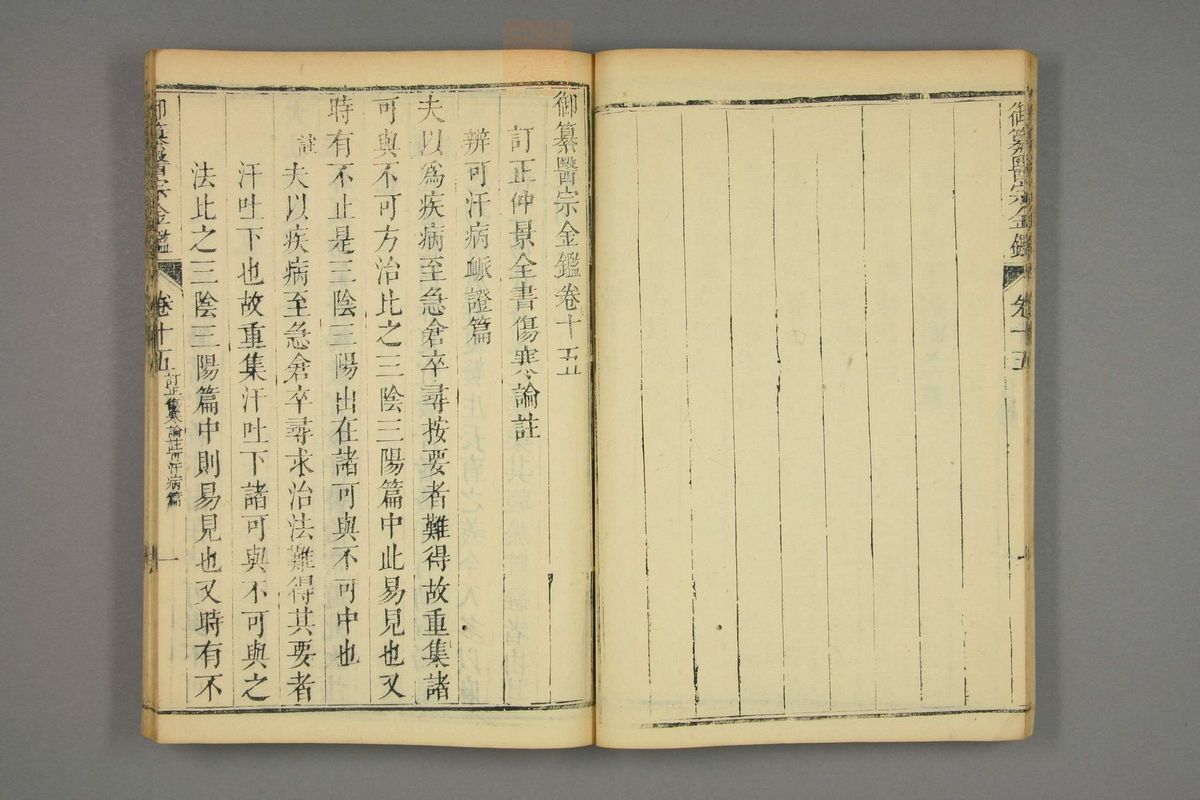 御纂醫宗金鑑
卷十五
御纂醫宗金鑑卷十五
訂正仲景全書傷寒論註
辨可汗病衇證篇
夫以為疾病至急倉卒尋按要者難得故重集諸
可與不可方治比之三陰三陽篇中此易見也又
時有不止是三陰三陽出在諸可與不可中也
註
夫以疾病至急倉卒尋求治法難得其要者
汗吐下也故重集汗吐下諸可與不可與之
法比之三陰三陽篇中則易見也又時有不
御纂醫宗金鑑
卷十五
訂正傷寒論註可汗病篇
一